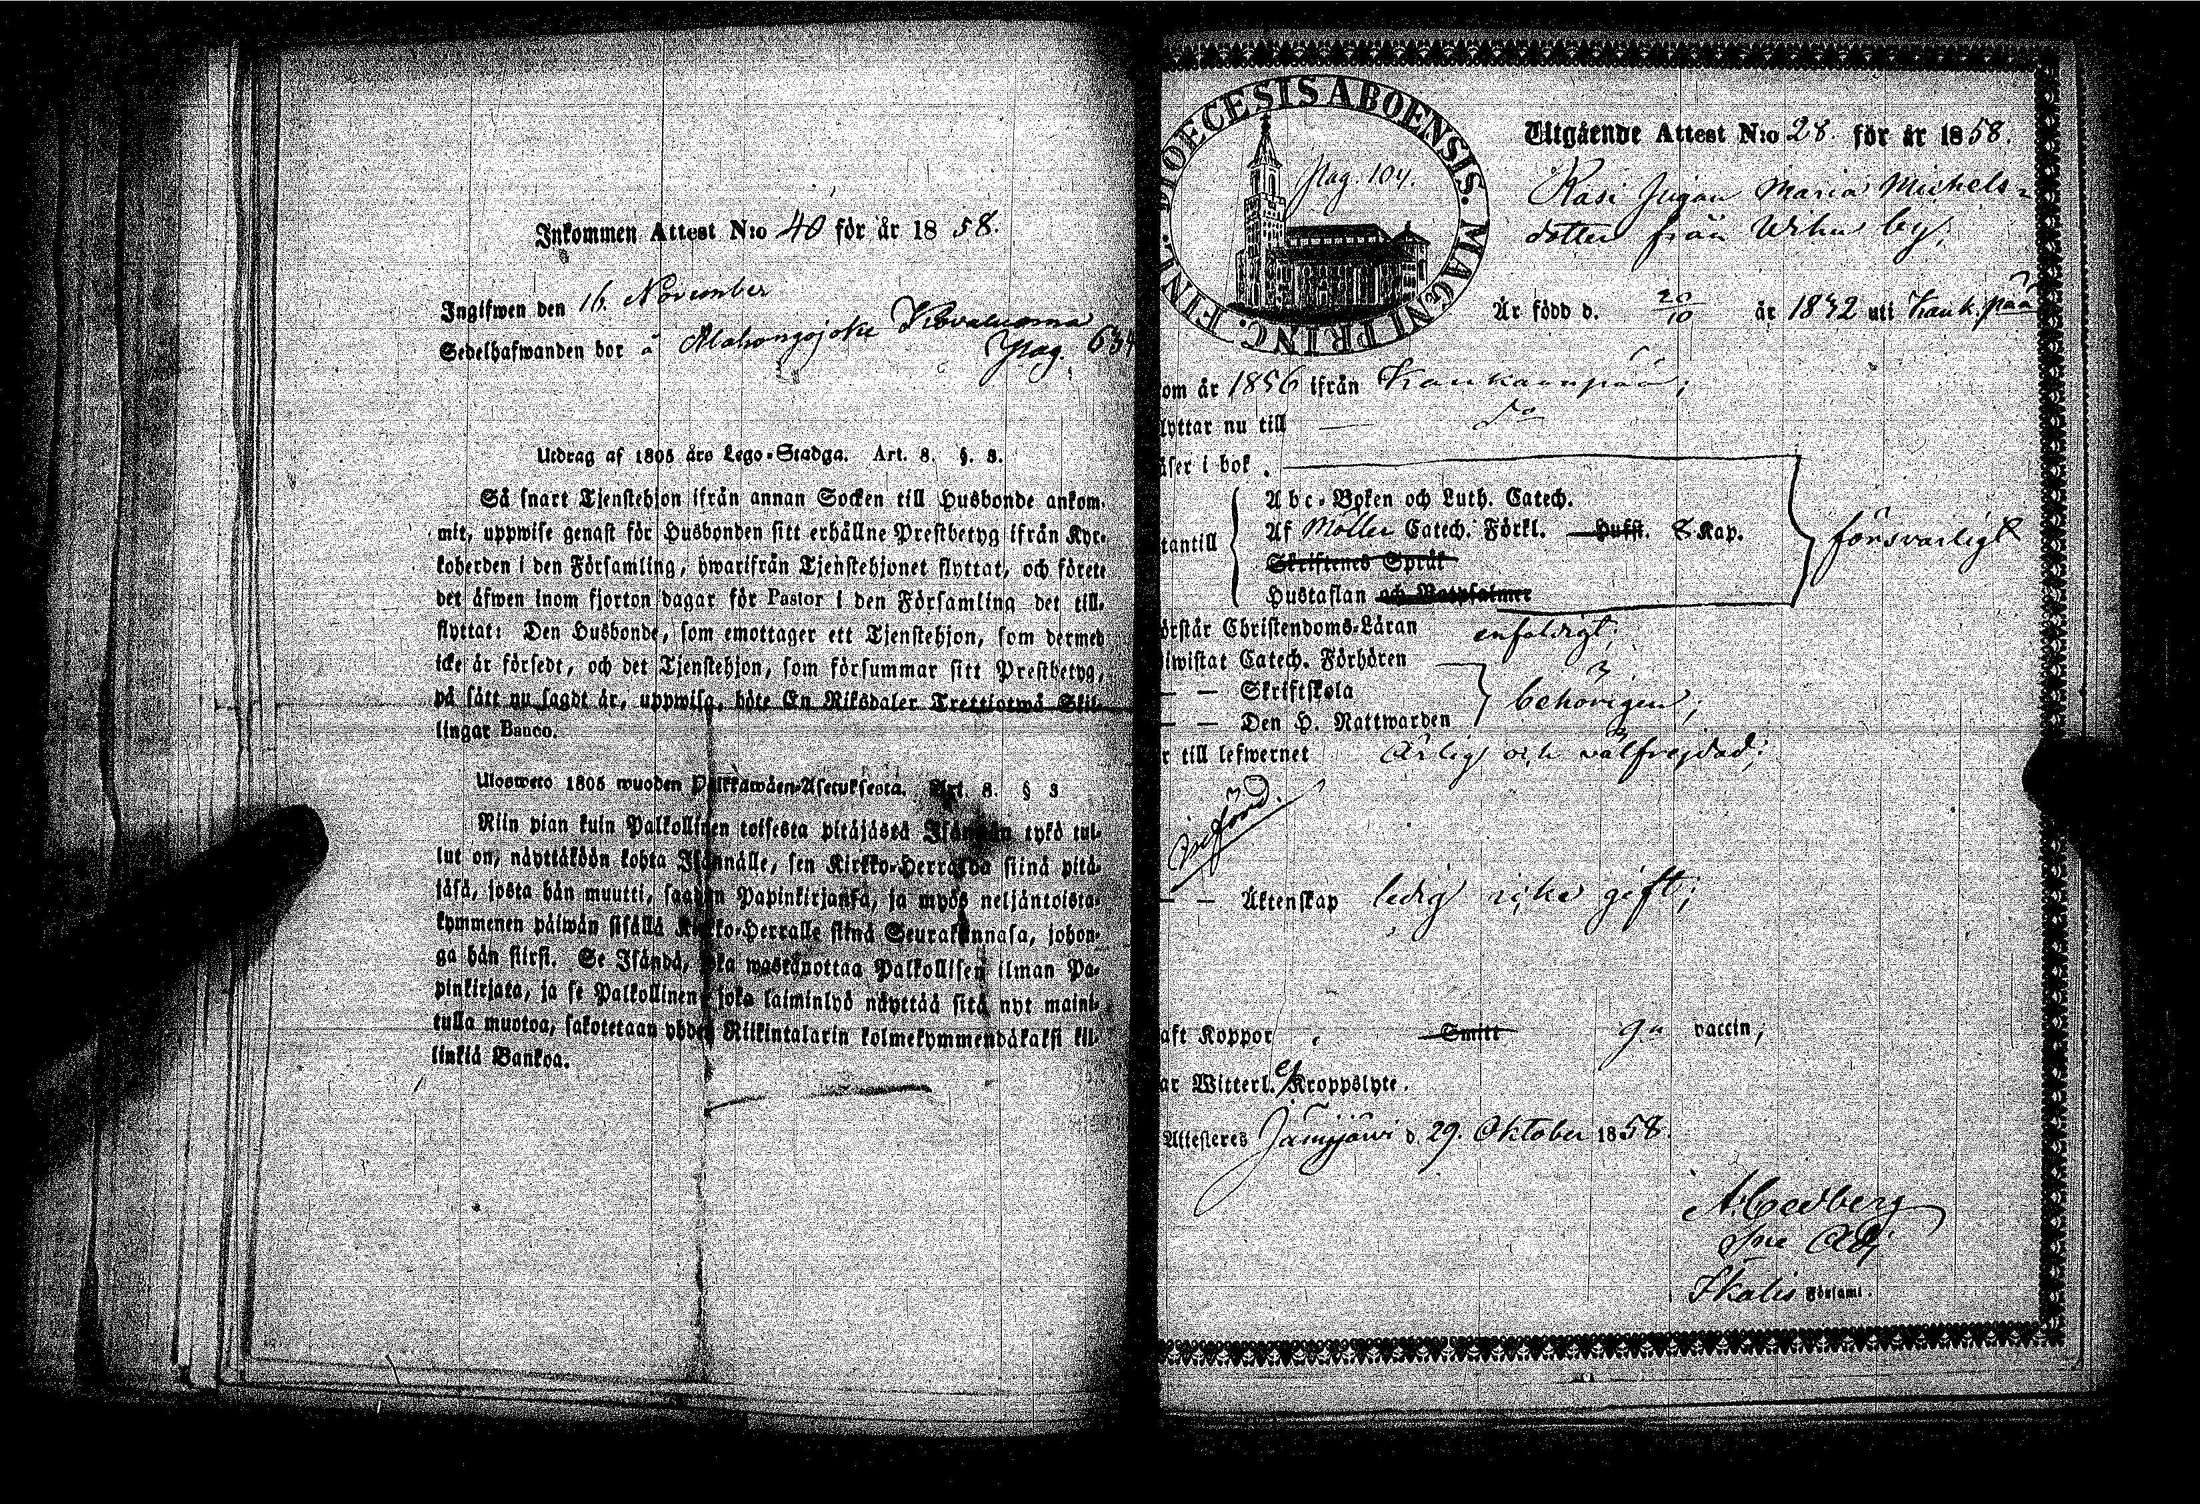 Inkommen Attest N:o 40 för år 1858.
Ingifwen den 16 November
Sedelhafwanden bor å Alahongojoki Kovaluoma
Pag. 634
Utdrag af 1805 års Lego-Stadga. Art. 8. §. 3.
Så snart Tjenstehjon ifrån annan Socken till Husbonde ankom-
mit, uppwise genast för Husbonden sitt erhållne Prestbetyg ifrån Kyr-
koherden i den Församling, hwarifrån Tjenstehjonet flyttat, och förete
det äfwen inom fjorton dagar för Pastor i den Församling det till-
flyttat: Den Husbonde, som emottager ett Tjenstehjon, som dermed
icke är försedt, och det Tjenstehjon, som försummar sitt Prestbetyg,
på sätt nu sagdt är, uppwisa, böte En Riksdaler Trettiotwå Skil-
lingar Banco.
Ulosweto 1805 wuoden Palkkawäen-Asetuksesta. Art. 8. § 3
Niin pian kuin Palkollinen toisesta pitäjästä Isännän tykö tul-
lut on, näyttäköön kohta Isännälle, sen Kirkko-Herralda siinä pitä-
jäsä, josta hän muutti, saadun Papinkirjansa, ja myös neljäntoista-
kymmenen päiwän sisällä Kirkko-Herralle siinä Seurakunnasa, johon-
ga hän siirsi. Se Isändä, joka wastanottaa Palkollisen ilman Pa-
pinkirjata, ja se Palkollinen joka laiminlyö näyttää sitä nyt maini-
tulla muotoa, sakotetaan yhden Riikintalarin kolmekymmendäkaksi kil-
linkiä Bankoa.
DIOECESIS ABOENSIS. MAGNI PRINC. FINL.
Pag. 104.
Utgående Attest N:o 28 för år 1858.
Pigan Maria Michels-
dotter från Wihu by;
Är född d. 20/10 år 1842 uti Kank.pää
om år 1856 ifrån Kankaanpää;
lyttar nu till — do
äser i bok.
Abc-Boken och Luth. Catech.
tantill Af Möller Catech. Förkl. Husst. & Kap.
Skriftenes Språk
Hustaflan och Botpsalmer
försvarligt
örstår Christendoms-Läran enfaldigt;
iwistat Catech. Förhören
— — Skriftskola
— — Den H. Nattwarden
behörigen;
r till lefwernet Ärlig och välfrejdad;
införd.
— — Äktenskap ledig icke gift;
aft Koppor Smitt gm vaccin;
ar Witterl. ej Kroppslyte.
Attesteres Jämijärvi d. 29. Oktober 1858.
A. Cedberg
Adj
Ikalis Församl.